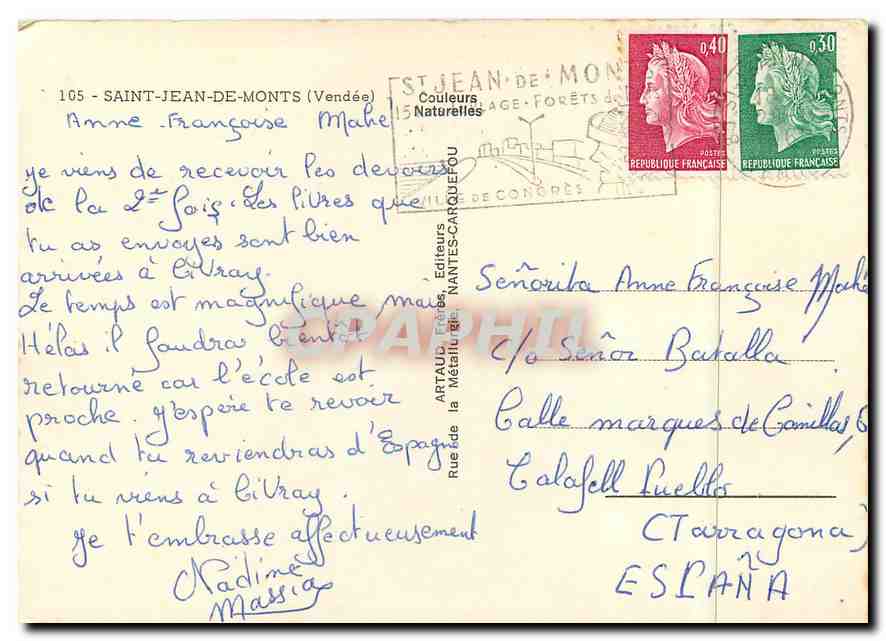 105 - SAINT-JEAN-DE-MONTS (Vendée)
Anne-Françoise Mahe
Je viens de recevoir les devoirs
de la 2e fois. Les livres que
tu as envoyés sont bien
arrivées à Civray.
Le temps est magnifique, mais
Hélas il faudra bientôt
retourné car l'école est
proche. J'espère te revoir
quand tu reviendras d'Espagne
si tu viens à Civray.
Je t'embrasse affectueusement
Nadine
Massia
Couleurs
Naturelles
ARTAUD Frères, Editeurs
Rue de la Métallurgie, NANTES-CARQUEFOU
ST JEAN-DE-MON
PLAGE-FORÊTS de
VILLE DE CONGRÈS
0,40
POSTES
REPUBLIQUE FRANÇAISE
0,30
POSTES
REPUBLIQUE FRANÇAISE
Señorita Anne Françoise Mahé
c/o Señor Batalla
Calle marques de Comillas, 6
Calafell Pueblo
(Tarragona)
ESPAÑA
CPAPHIL